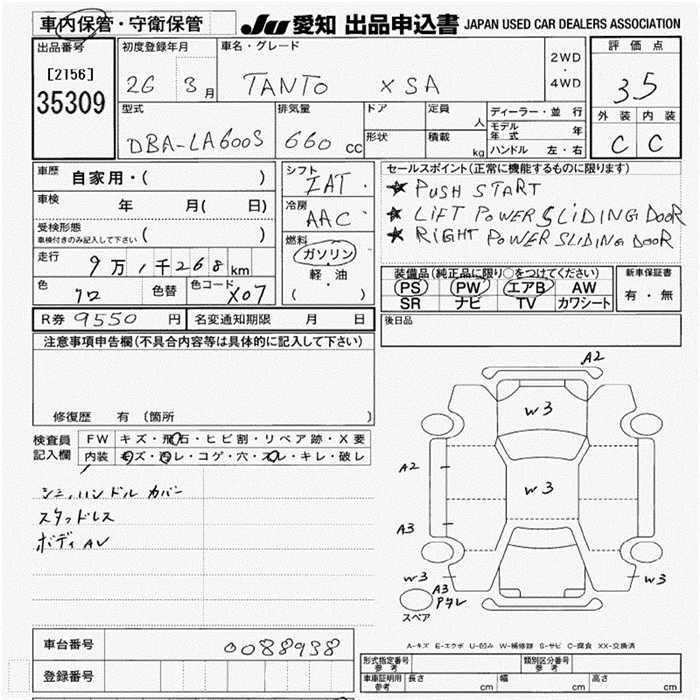 車内保管・守衛保管
JU 愛知 出品申込書 JAPAN USED CAR DEALERS ASSOCIATION
出品番号
[2156]
35309
初度登録年月
26 3月
車名・グレード
TANTO X SA
2WD
・
4WD
評価点
3.5
外装 内装
C C
型式
DBA-LA600S
排気量
660 cc
ドア
形状
定員 人
積載 kg
ディーラー・並行
モデル年式 年
ハンドル 左・右
車歴 自家用・( )
車検 年 月( 日)
受検形態
車検付きのみ記入して下さい ( )
走行 9万1千268km
色 クロ 色替 色コード X07
シフト
IAT
冷房
AAC
燃料
ガソリン
軽・油
( )
セールスポイント(正常に機能するものに限ります)
★ PUSH START
★ LIFT POWER SLIDING DOOR
★ RIGHT POWER SLIDING DOOR
装備品(純正品に限り○をつけてください)
PS PW エアB AW
SR ナビ TV カワシート
新車保証書
有・無
R券 9550 円 名変通知期限 月 日
後日品
注意事項申告欄(不具合内容等は具体的に記入して下さい)
修復歴 有 〔箇所 〕
検査員記入欄
FW キズ・飛石・ヒビ割・リペア跡・X要
内装 キズ・汚レ・コゲ・穴・スレ・キレ・破レ
シミ,ハンドルカバー
スタッドレス
ボディAV
A2
W3
A2
W3
A3
W3
A3
W3
スペア
A-キズ E-エクボ U-凹み W-補修跡 S-サビ C-腐食 XX-交換済
車台番号 0088938
登録番号
形式指定番号 参考 類別区分番号 参考
車庫証明用 参考 長さ cm 幅 cm 高さ cm